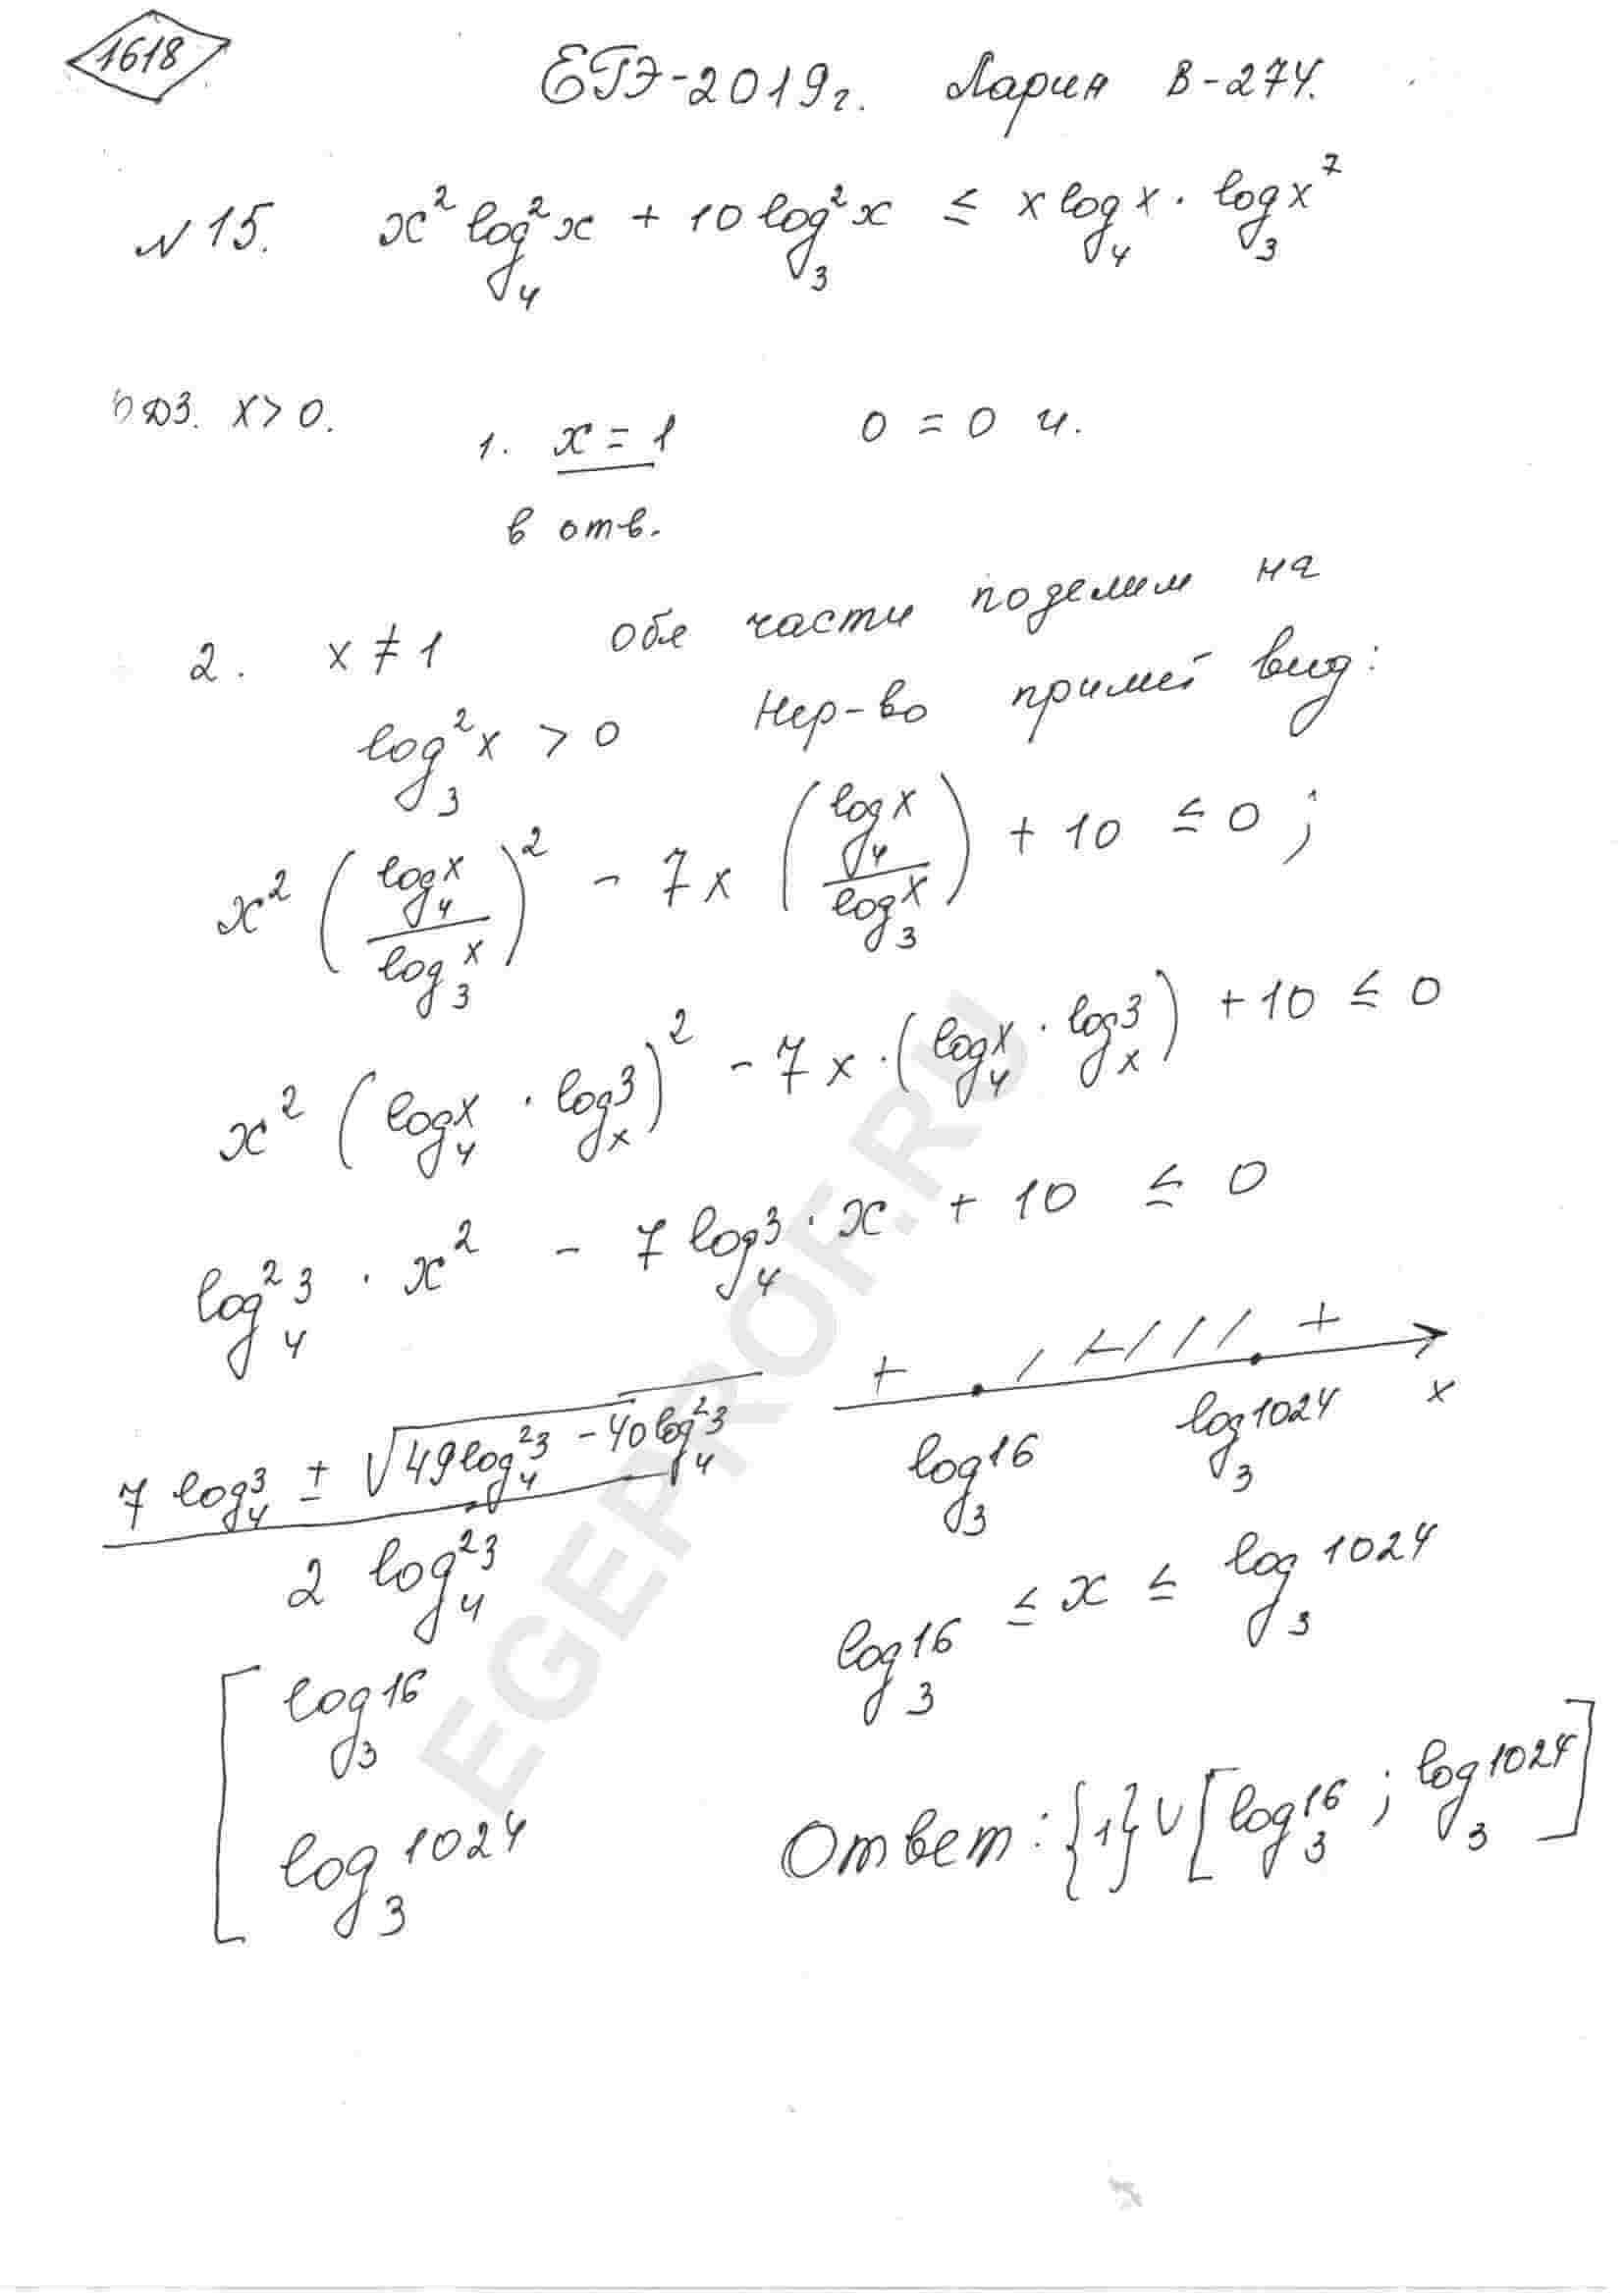 1618
ЕГЭ-2019г. Ларин В-274.
№15. x² log₄² x + 10 log₃² x ≤ x log₄ x · log₃ x⁷
ОДЗ. x > 0.
1. x = 1 0 = 0 и.
в отв.
2. x ≠ 1 обе части поделим на
log₃² x > 0 Нер-во примет вид:
x² (log₄ x / log₃ x)² - 7x (log₄ x / log₃ x) + 10 ≤ 0;
x² (log₄ x · logₓ 3)² - 7x · (log₄ x · logₓ 3) + 10 ≤ 0
log₄² 3 · x² - 7 log₄ 3 · x + 10 ≤ 0
(7 log₄ 3 ± √(49 log₄² 3 - 40 log₄² 3)) / (2 log₄² 3)
[ log₃ 16
log₃ 1024
+ - +
log₃ 16 log₃ 1024 x
log₃ 16 ≤ x ≤ log₃ 1024
Ответ: {1} ∪ [log₃ 16 ; log₃ 1024]
EGEPROF.RU